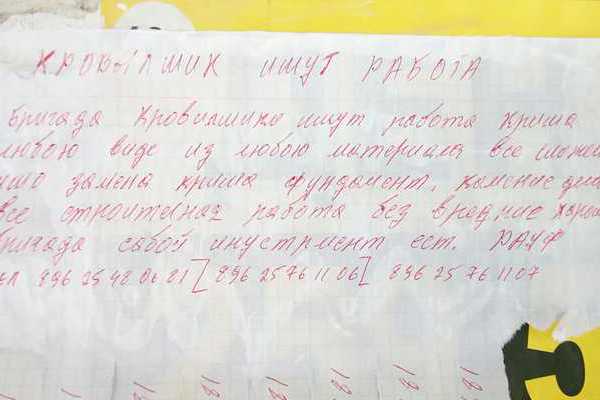 КРОВИЛШИК ИЩУТ РАБОТА
Бригада Кровилшика ищут работа крыша
любою виде из любою материала все
замена крыша фундамент, камение
все строителная работа без вредние
бригада собой инустримент ест. РАУФ
896 25 76 11 06 896 25 76 11 07